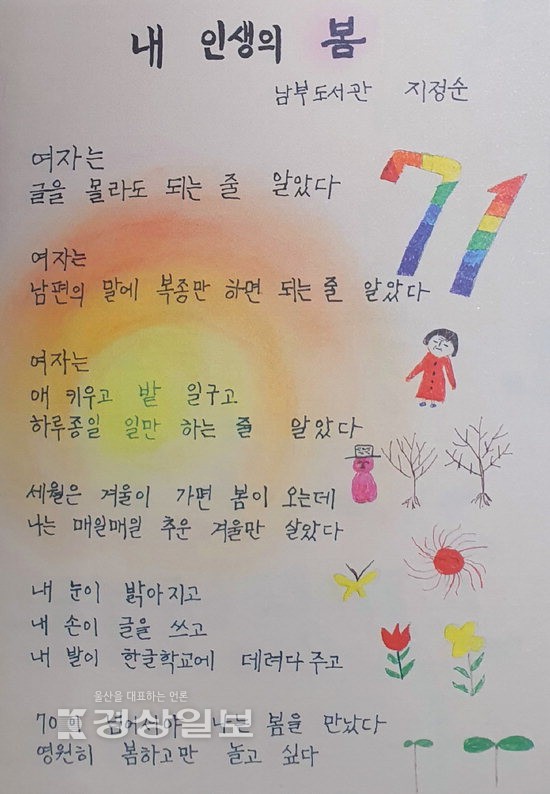 내 인생의 봄
남부도서관 지정순
71
여자는
글을 몰라도 되는 줄 알았다
여자는
남편의 말에 복종만 하면 되는 줄 알았다
여자는
애 키우고 밭 일구고
하루종일 일만 하는 줄 알았다
세월은 겨울이 가면 봄이 오는데
나는 매월매월 추운 겨울만 살았다
내 눈이 밝아지고
내 손이 글을 쓰고
내 발이 한글학교에 데려다주고
울산을 대표하는 언론
경상일보
70이 나는 봄을 만났다
영원히 봄하고만 놀고 싶다